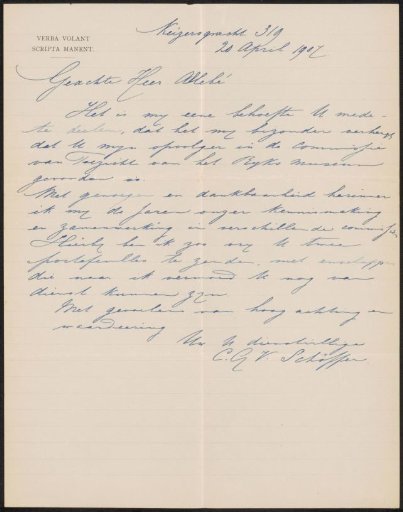 VERBA VOLANT
SCRIPTA MANENT.
Keizersgracht 319
20 April 1907
Geachte Heer Allebé
Het is my eene behoefte U mede-
te deelen, dat het my byzonder verheugt
dat U myn opvolger in de commissie
van Toezicht van het Ryks Museum
geworden is.
Met genoegen en dankbaarheid herinner
ik my de jaren onzer kennismaking
en samenwerking in verschillende commissies
Hierby ben ik zoo vry U twee
portefeuilles te zenden, met enveloppen
die naar ik vermoed U nog van
dienst kunnen zyn
Met gevoelens van hoogachting en
waardeering
Uw U dienstwillige
C. G. V. Schöffer